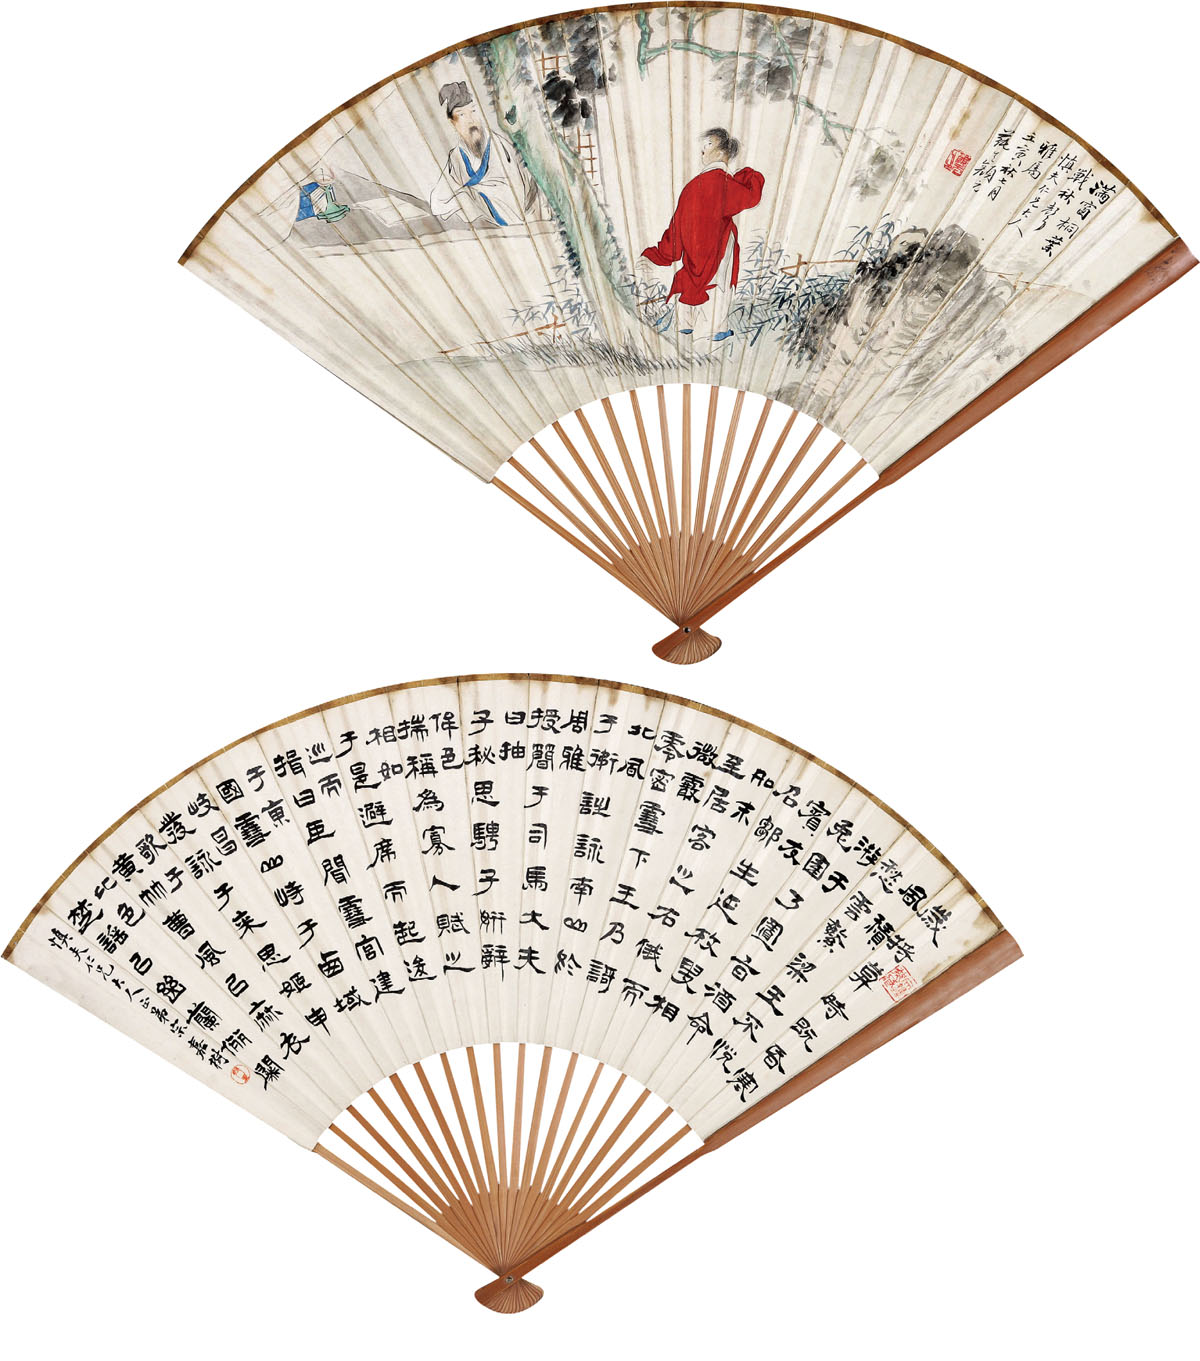 滿窗桐葉
戰秋聲
慎夫仁兄大人
雅屬
壬寅秋七月
歲將暮時既昏寒
風積
愁雲繁梁王不悅
游于
兔園乃置旨酒命
賓友
召鄒生延枚叟相
如末
至居客之右俄而
微霰
零密雪下王乃謌
北風
于衛詩詠南山於
周雅
授簡于司馬大夫
曰抽
子秘思騁子妍辭
侔色
揣稱為寡人賦之
相如
于是避席而起逡
巡而
揖曰臣聞雪宮建
于東
國雪山峙于西域
岐昌
發詠于來思姬申
歌于
黃竹曹風㠯麻衣
比色
楚謠㠯幽蘭儷闋
慎夫仁兄大人正 弟宗嘉樹